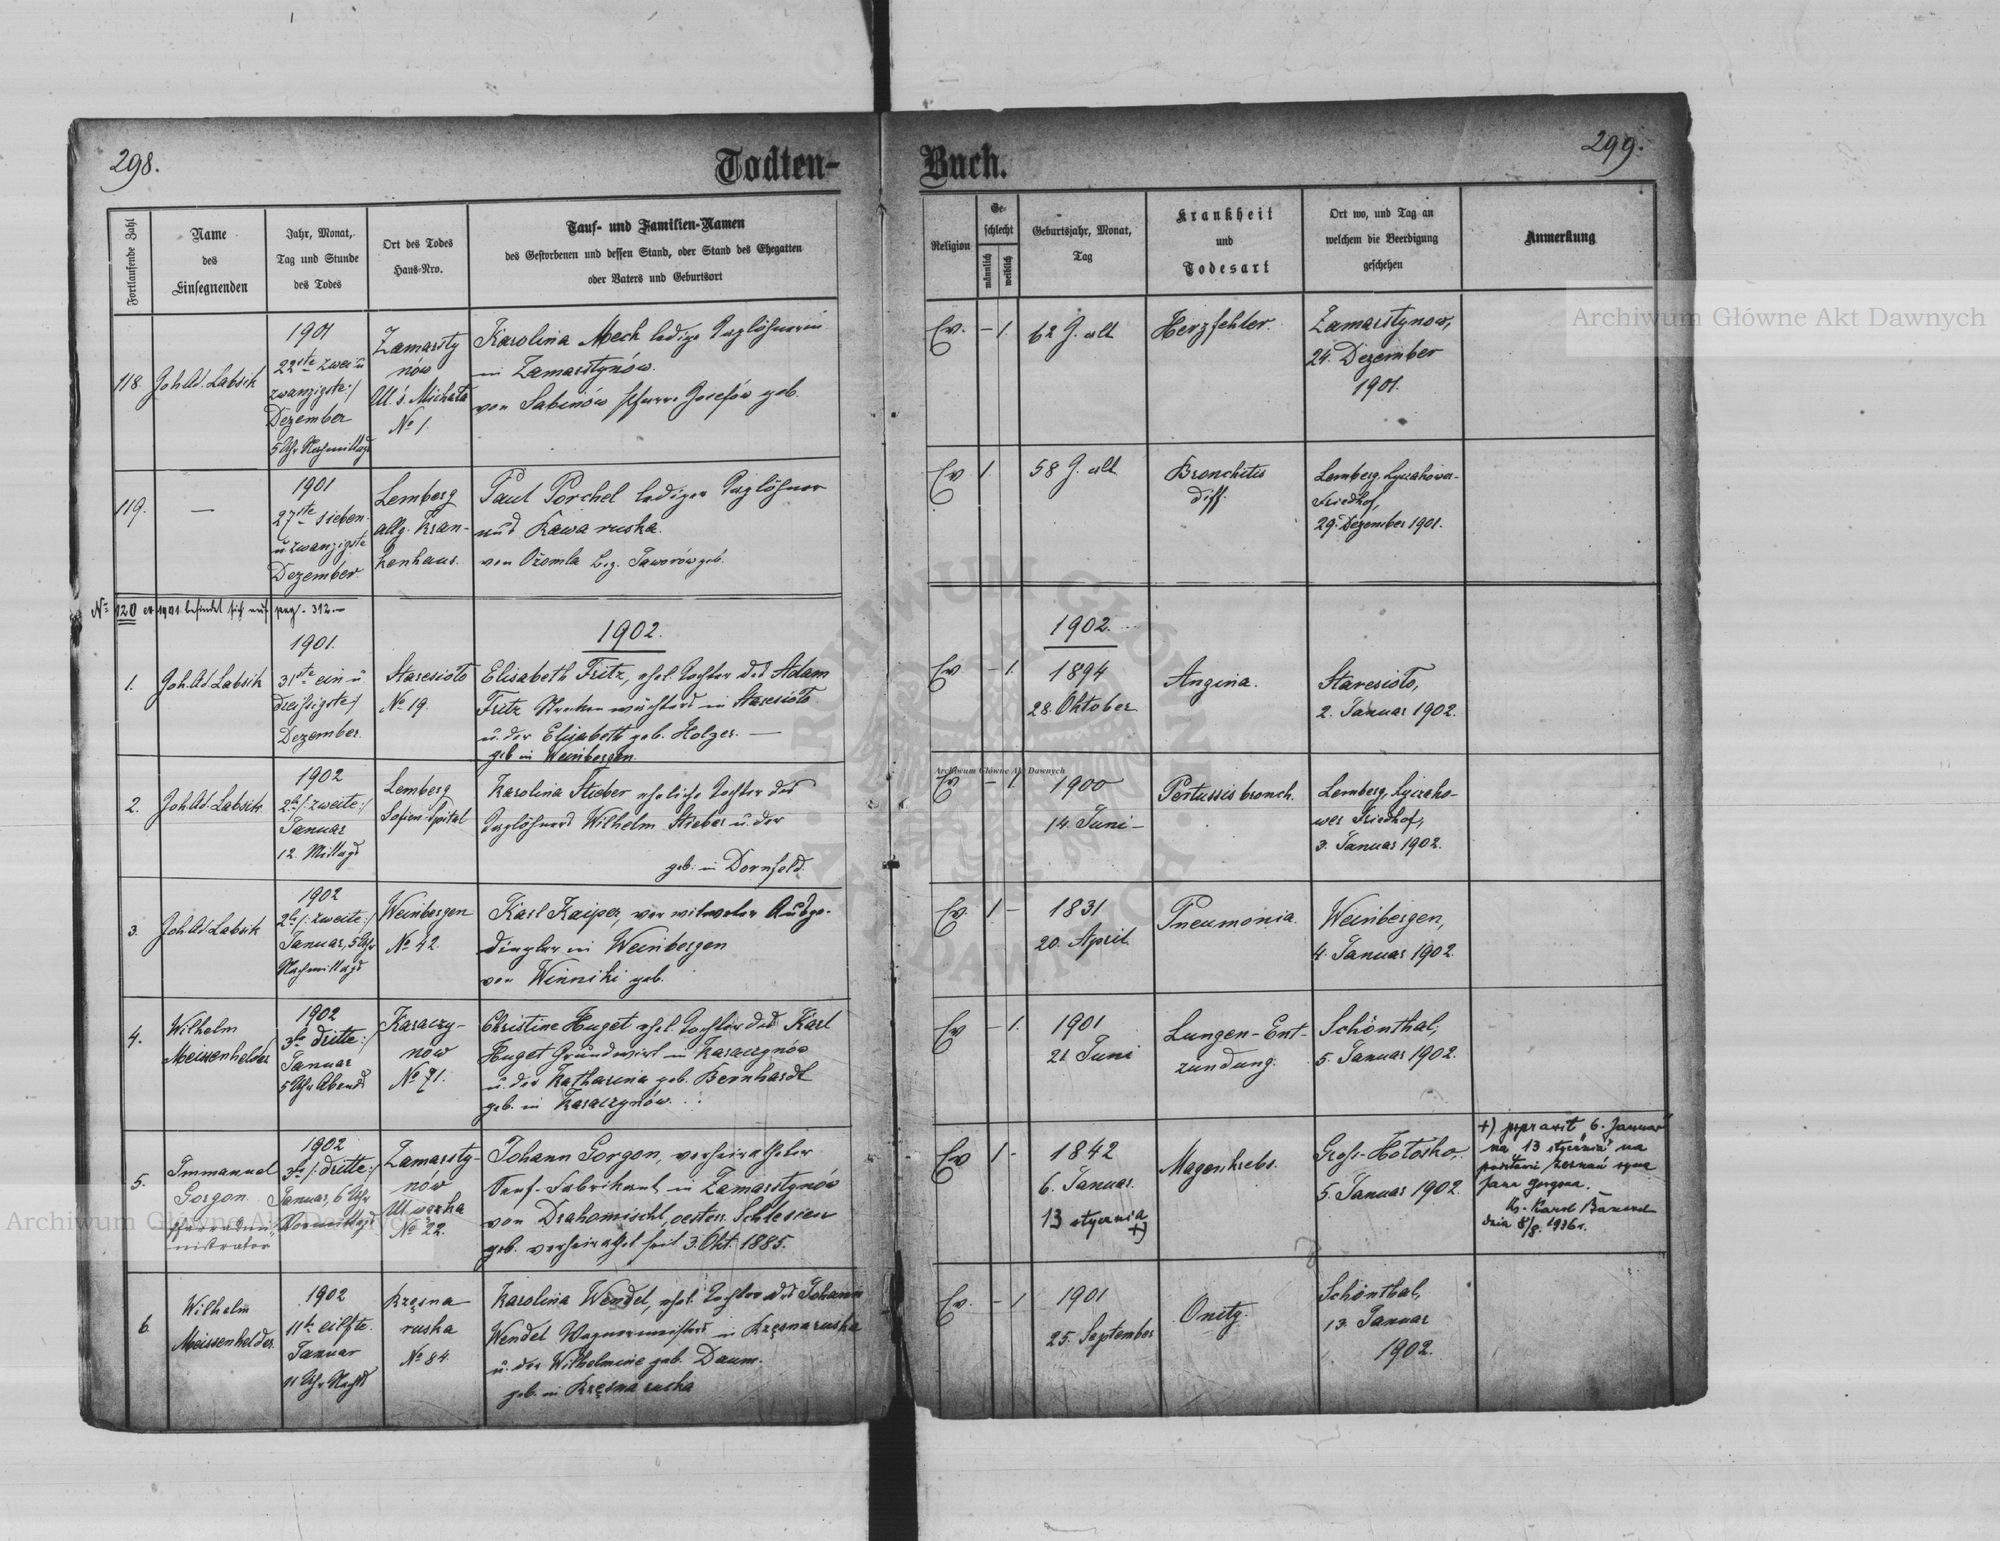 298.
Todten-
Fortlaufende Zahl
Name
des
Einsegnenden
Jahr, Monat,
Tag und Stunde
des Todes
Ort des Todes
Haus-Nro.
Tauf- und Familien-Namen
des Gestorbenen und dessen Stand, oder Stand des Ehegatten
oder Vaters und Geburtsort
118.
Joh. Ad. Labsik
1901
22ste zwei u
zwanzigste:/
Dezember
5 Uhr Nachmittags
Zamarsty
nów
Ul. ś. Michała
No 1.
Karolina Mech ledige Taglöhnerin
in Zamarstynów.
von Sabinów Pfarre Josefów geb.
119.
—
1901
27ste sieben
u. zwanzigste
Dezember
Lemberg
allg. Kran-
kenhaus.
Paul Porchel lediger Taglöhner
aus Rawa ruska.
von Ożomla bez. Jaworów geb.
No 120 ex 1901 befindet sich auf pag. 312.
1902.
1.
Joh. Ad. Labsik
1901.
31ste ein u
dreißigste/
Dezember.
Staresioło
No 19.
Elisabeth Fritz, ehel. Tochter des Adam
Fritz Streckenwächters in Staresioło
u. der Elisabeth geb. Holzer. —
geb. in Weinbergen.
2.
Joh. Ad. Labsik
1902
2te /: zweite:/
Januar
12. Mittags
Lemberg
Sofien-Spital
Karolina Stieber eheliche Tochter des
Taglöhners Wilhelm Stieber u. der
geb. in Dornfeld.
3.
Joh. Ad. Labsik
1902
2te /: zweite:/
Januar, 5 Uhr
Nachmittags
Weinbergen
No 42.
Karl Kaiper, verwitweter Ausge-
dingler in Weinbergen
von Winniki geb.
4.
Wilhelm
Meissenhelder
1902
3te dritte:/
Januar
5 Uhr Abends
Karaczy-
now
No 71.
Christine Huget ehel. Tochter des Karl
Huget Grundwirt in Karaczynów
u. der Katharina geb. Bernhardt
geb. in Karaczynów.
5.
Immanuel
Gorgon
Pfarradmi-
nistrator
1902
3te /: dritte:/
Januar, 6 Uhr
Vormittags
Zamarsty-
nów
No 22.
Johann Gorgon, verheiratheter
Senf-Fabrikant in Zamarstynów
von Drahomischl, oesterr. Schlesien
geb. verheirathet seit 3. Okt. 1885.
6.
Wilhelm
Meissenhelder.
1902
11te eilfte.
Januar
11 Uhr Nachts
Krzęsna
ruska
No 84.
Karolina Wendel, ehel. Tochter des Johann
Wendel Wagnermeisters in Krzęsna ruska
u. der Wilhelmine geb. Daum.
geb. in Krzęsna ruska
Buch.
299.
Religion
Ge-
schlecht
männlich
weiblich
Geburtsjahr, Monat,
Tag
Krankheit
und
Todesart
Ort wo, und Tag an
welchem die Beerdigung
geschehen
Anmerkung
Ev. – 1.
62 J. alt
Herzfehler.
Zamarstynow,
24. Dezember
1901.
Ev 1.
58 J. alt
Bronchitis
diff.
Lemberg, Lyczakower-
Friedhof,
29. Dezember 1901.
1902.
Ev – 1.
1894
28. Oktober
Angina.
Staresioło,
2. Januar 1902.
Ev – 1.
1900
14. Juni –
Pertussis bronch.
Lemberg, Lyczako-
wer Friedhof,
3. Januar 1902.
Ev. 1 –
1831
20. April
Pneumonia.
Weinbergen,
4. Januar 1902.
Ev – 1.
1901
21 Juni
Lungen-Ent-
zündung.
Schönthal,
5. Januar 1902.
Ev 1 –
1842
6. Januar.
13 stycznia
+)
Magenkrebs.
Gross-Hołosko,
5. Januar 1902.
+) poprawił "6. Januar"
na "13 stycznia" na
podstawi zeznań syna
Jana Gorgona.
dnia 8/8. 1936 r.
Ev. – 1
1901
25. September
Schönthal,
13. Januar
1902.
Archiwum Główne Akt Dawnych
Archiwum Główne Akt Dawnych
Archiwum Główne Akt Dawnych
ARCHIWUM GŁÓWNE AKT DAWNYCH